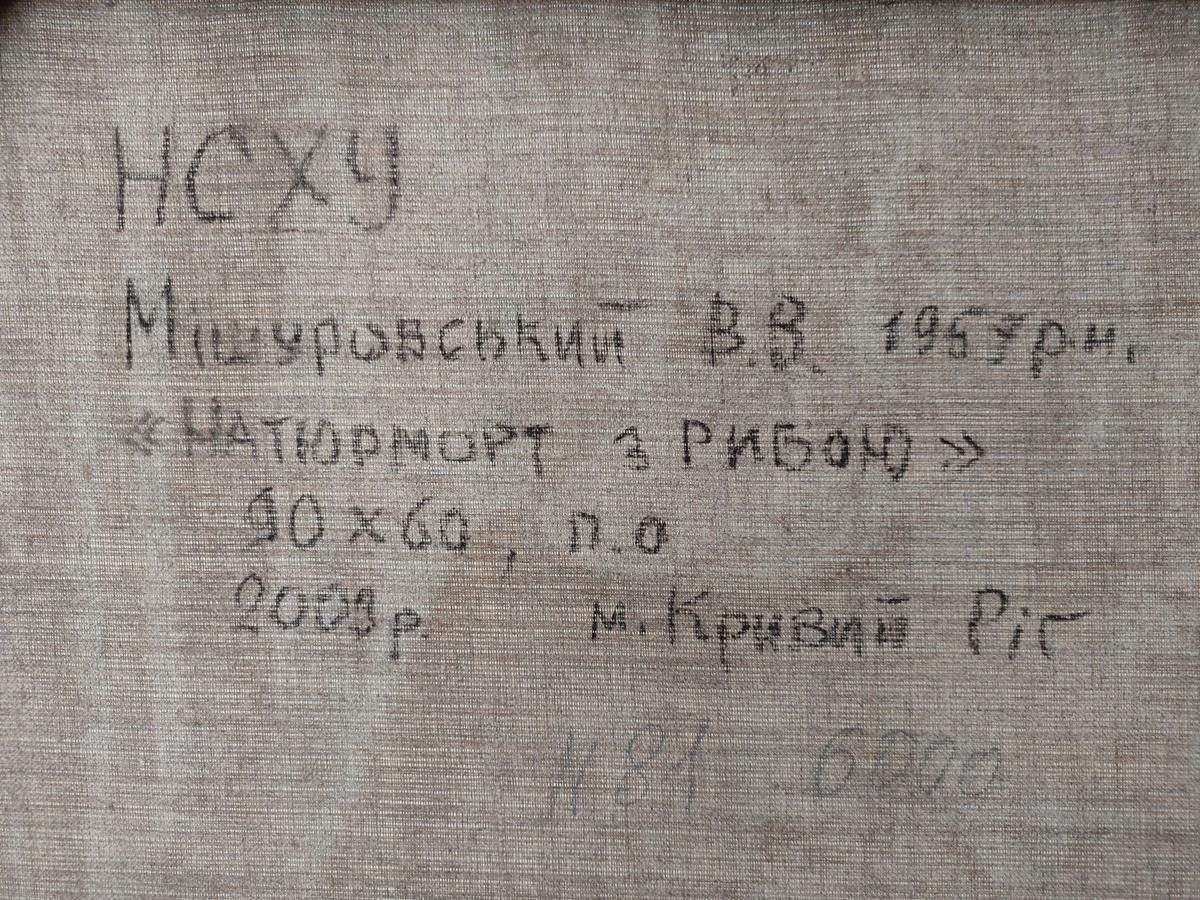 НСХУ
Мішуровський В.В. 1957 р.н.
«НАТЮРМОРТ з РИБОЮ»
90 х 60, п.о
2003 р. м. Кривий Ріг
N 81 6000